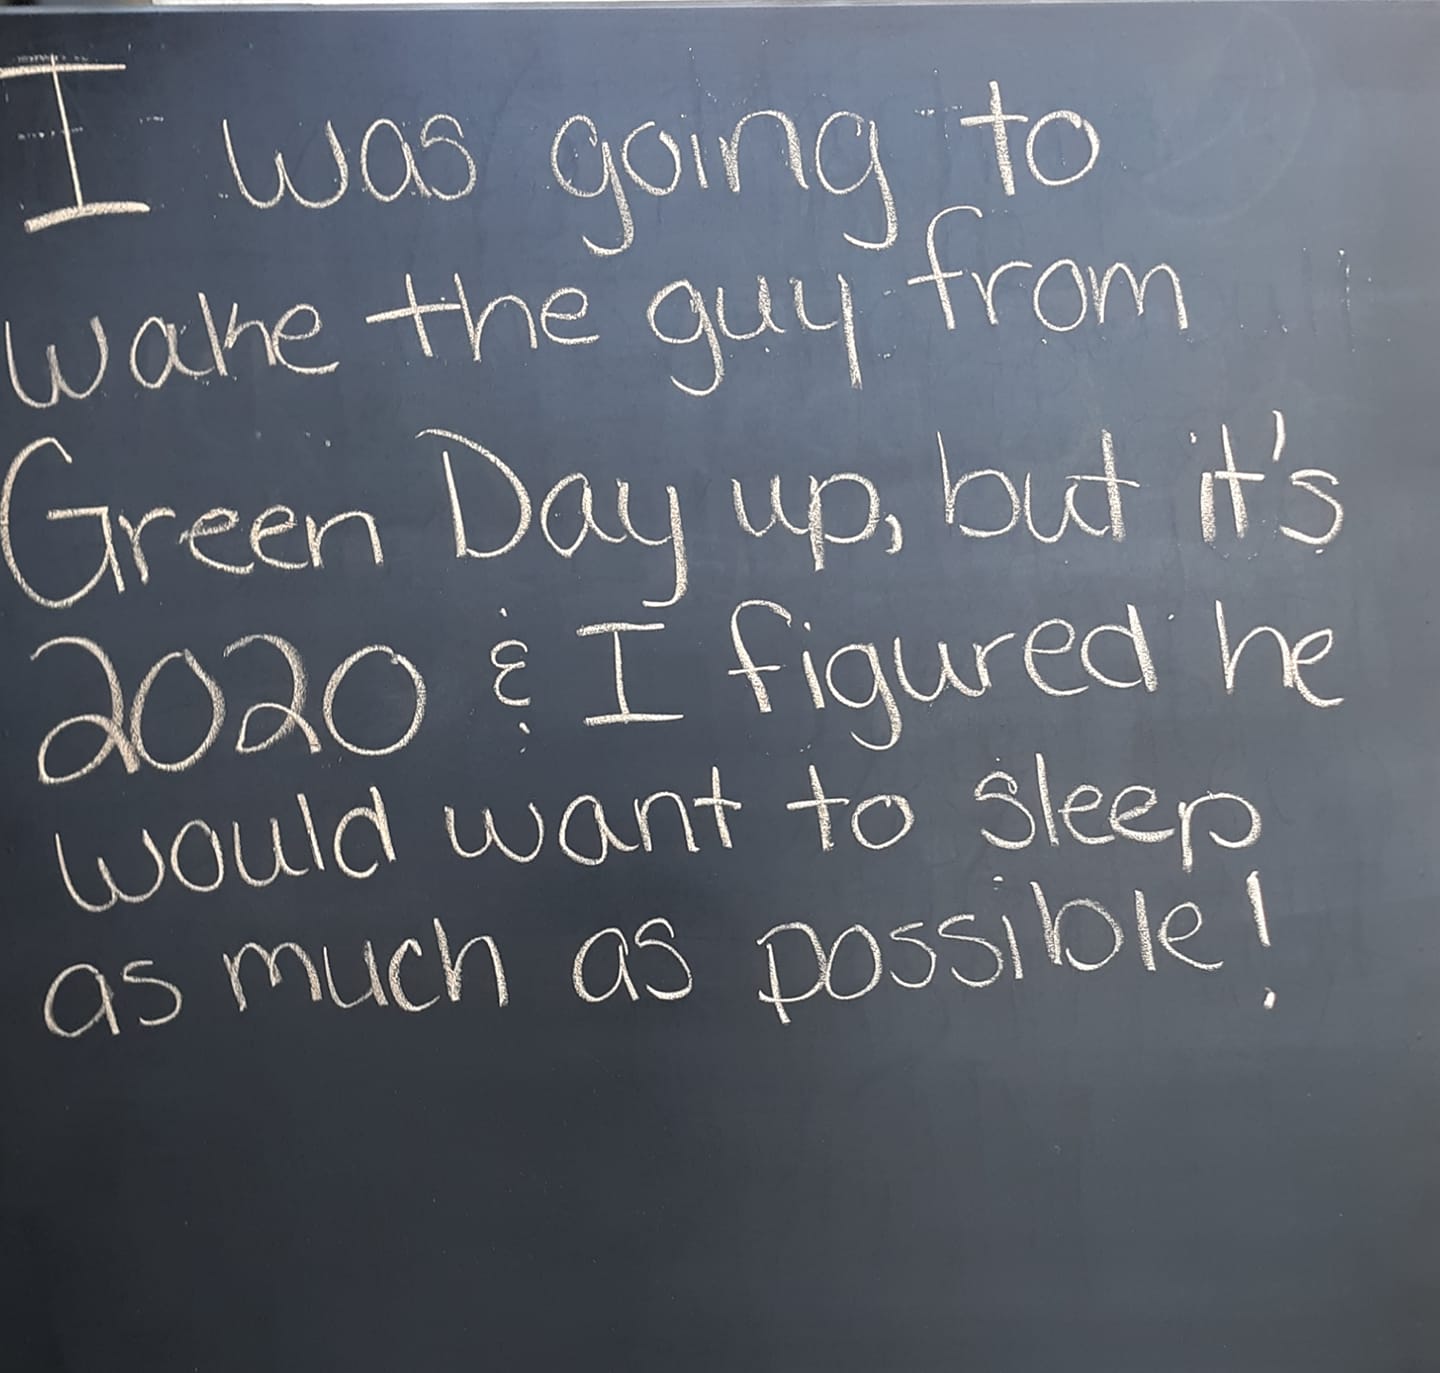 I was going to
wake the guy from
Green Day up, but it's
2020 & I figured he
would want to sleep
as much as possible!